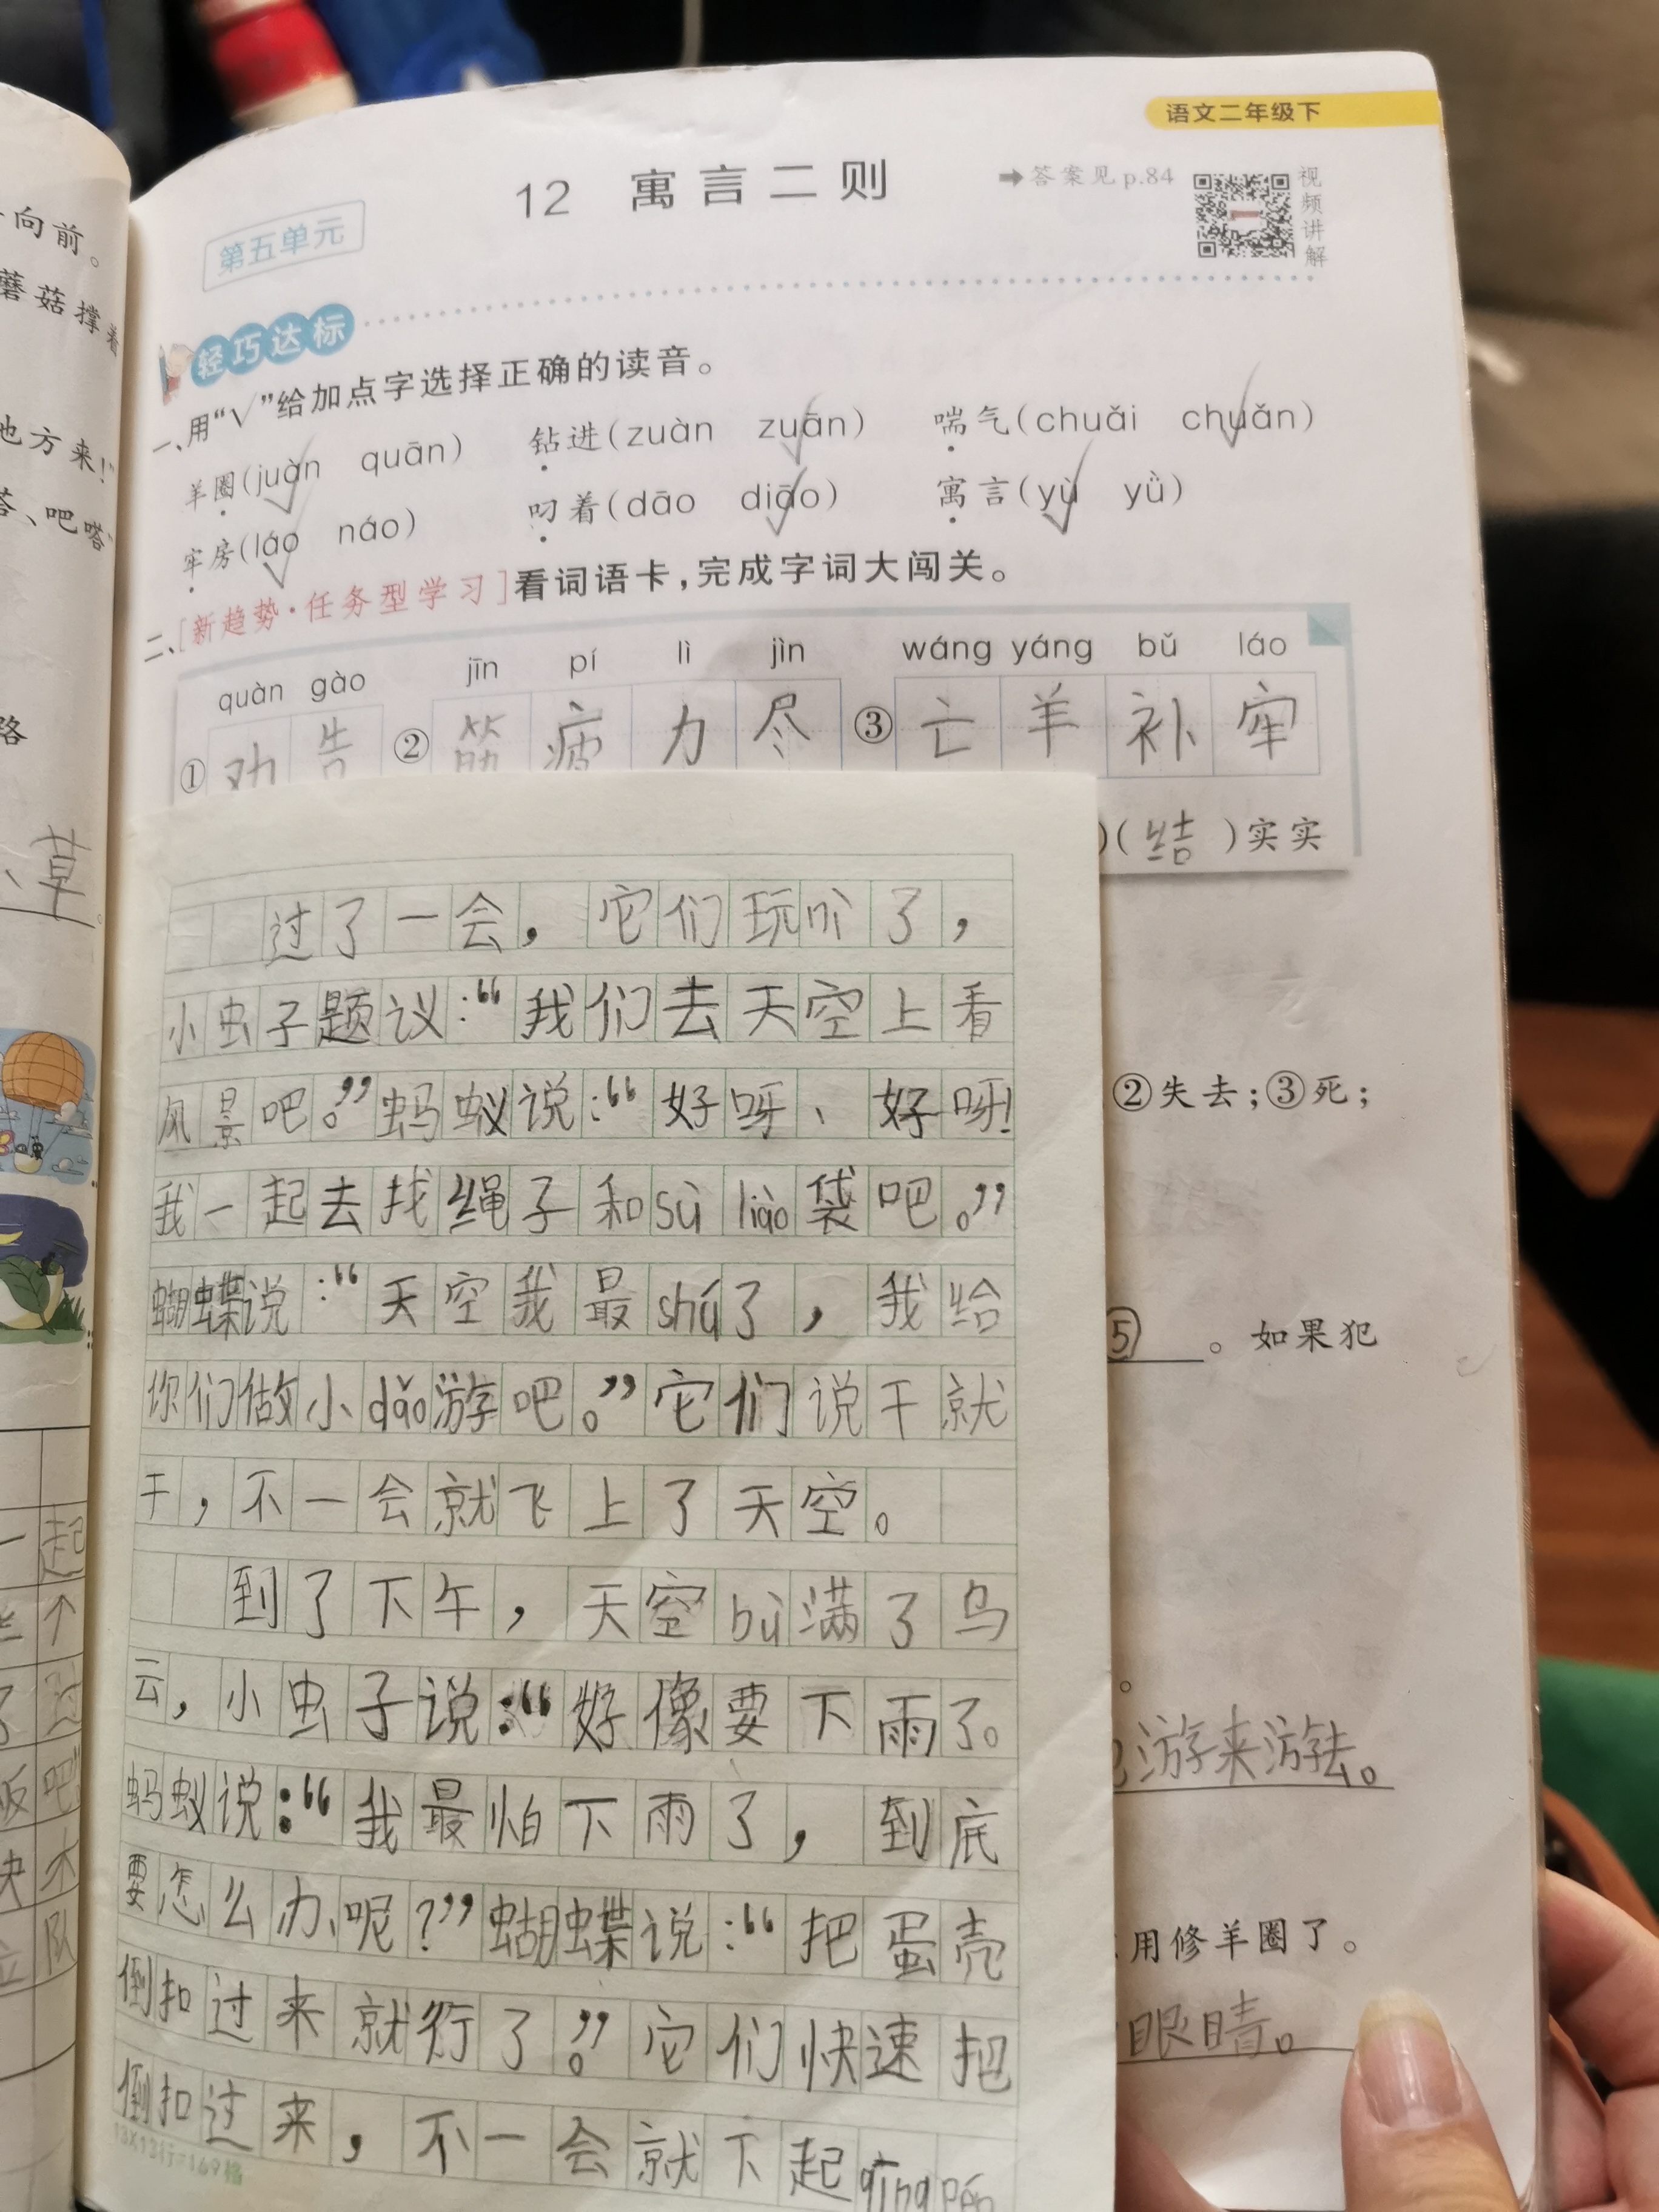 语文二年级下
12 寓言二则
➡答案见p.84
视频讲解
第五单元
轻巧达标
一、用“√”给加点字选择正确的读音。
羊圈(juàn quān) 钻进(zuàn zuān) 喘气(chuǎi chuǎn)
牢房(láo náo) 叼着(dāo diāo) 寓言(yù yǜ)
二、[新趋势·任务型学习]看词语卡,完成字词大闯关。
quàn gào jīn pí lì jìn wáng yáng bǔ láo
①劝告 ②筋疲力尽 ③亡羊补牢
)(结)实实
②失去;③死;
⑤。如果犯
。
游来游去。
用修羊圈了。
眼睛。
过了一会，它们玩了，
小虫子题议：“我们去天空上看
风景吧。”蚂蚁说：“好呀、好呀!
我一起去找绳子和sù liào袋吧。”
蝴蝶说：“天空我最shú了，我给
你们做小dǎo游吧。”它们说干就
干，不一会就飞上了天空。
到了下午，天空bù满了乌
云，小虫子说：“好像要下雨了。
蚂蚁说：“我最怕下雨了，到底
要怎么办呢？”蝴蝶说：“把蛋壳
倒扣过来就行了。”它们快速把
倒扣过来，不一会就下起qīng pén
13×13行=169格
向前。
蘑菇撑着
地方来!”
嗒、吧嗒”
路
、草。
起
个
过
吧”
队